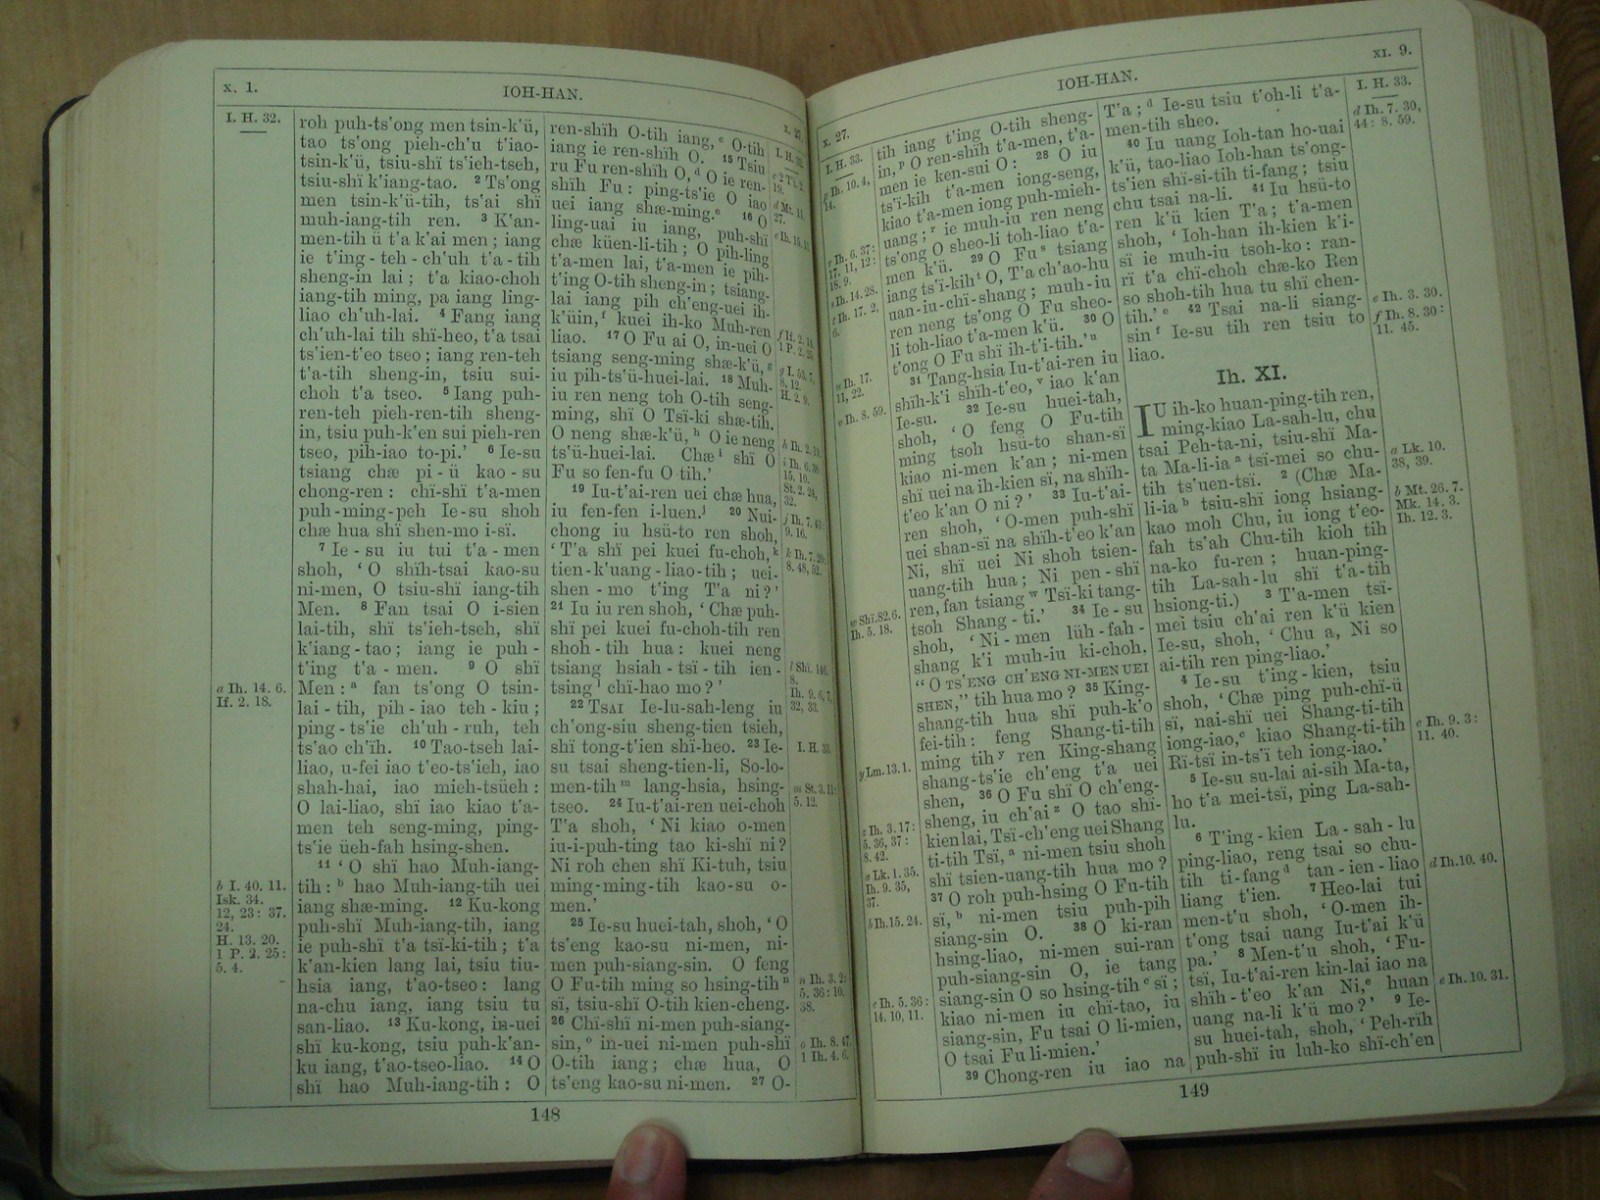 x. 1.
IOH-HAN.
x. 27.
I. H. 32.
roh puh-ts'ong men tsin-k'ü,
tao ts'ong pieh-ch'u t'iao-
tsin-k'ü, tsiu-shï ts'ieh-tseh,
tsiu-shï k'iang-tao. ² Ts'ong
men tsin-k'ü-tih, ts'ai shï
muh-iang-tih ren. ³ K'an-
men-tih ü t'a k'ai men ; iang
ie t'ing - teh - ch'uh t'a - tih
sheng-in lai ; t'a kiao-choh
iang-tih ming, pa iang ling-
liao ch'uh-lai. ⁴ Fang iang
ch'uh-lai tih shï-heo, t'a tsai
ts'ien-t'eo tseo ; iang ren-teh
t'a-tih sheng-in, tsiu sui-
choh t'a tseo. ⁵ Iang puh-
ren-teh pieh-ren-tih sheng-
in, tsiu puh-k'en sui pieh-ren
tseo, pih-iao to-pi.' ⁶ Ie-su
tsiang chæ pi - ü kao - su
chong-ren : chï-shï t'a-men
puh-ming-peh Ie-su shoh
chæ hua shï shen-mo i-sï.
⁷ Ie - su iu tui t'a - men
shoh, ‘ O shïh-tsai kao-su
ni-men, O tsiu-shï iang-tih
Men. ⁸ Fan tsai O i-sien
lai-tih, shï ts'ieh-tseh, shï
k'iang - tao ; iang ie puh -
t'ing t'a - men. ⁹ O shï
Men : ᵃ fan ts'ong O tsin-
lai - tih, pih - iao teh - kiu ;
ping - ts'ie ch'uh - ruh, teh
ts'ao ch'ïh. ¹⁰ Tao-tseh lai-
liao, u-fei iao t'eo-ts'ieh, iao
shah-hai, iao mieh-tsüeh :
O lai-liao, shï iao kiao t'a-
men teh seng-ming, ping-
ts'ie üeh-fah hsing-shen.
¹¹ ‘ O shï hao Muh-iang-
tih : ᵇ hao Muh-iang-tih uei
iang shæ-ming. ¹² Ku-kong
puh-shï Muh-iang-tih, iang
ie puh-shï t'a tsï-ki-tih ; t'a
k'an-kien lang lai, tsiu tiu-
hsia iang, t'ao-tseo : lang
na-chu iang, iang tsiu tu
san-liao. ¹³ Ku-kong, in-uei
shï ku-kong, tsiu puh-k'an-
ku iang, t'ao-tseo-liao. ¹⁴ O
shï hao Muh-iang-tih : O
a Ih. 14. 6.
If. 2. 18.
b I. 40. 11.
Isk. 34.
12, 23 : 37.
24.
H. 13. 20.
1 P. 2. 25 :
5. 4.
ren-shïh O-tih iang, ᶜ O-tih
iang ie ren-shïh O. ¹⁵ Tsiu
ru Fu ren-shïh O, ᵈ O ie ren-
shïh Fu : ping-ts'ie O iao
uei iang shæ-ming.ᵉ ¹⁶ O
ling-uai iu iang, puh-shï
chæ küen-li-tih ; O pih-ling
t'a-men lai, t'a-men ie pih-
t'ing O-tih sheng-in ; tsiang-
lai iang pih ch'eng-uei ih-
k'üin,ᶠ kuei ih-ko Muh-ren
liao. ¹⁷ O Fu ai O, in-uei O
tsiang seng-ming shæ-k'ü,ᵍ
iu pih-ts'ü-huei-lai. ¹⁸ Muh-
iu ren neng toh O-tih seng-
ming, shï O Tsï-ki shæ-tih.
O neng shæ-k'ü, ʰ O ie neng
ts'ü-huei-lai. Chæ ⁱ shï O
Fu so fen-fu O tih.'
¹⁹ Iu-t'ai-ren uei chæ hua,
iu fen-fen i-luen.ʲ ²⁰ Nui-
chong iu hsü-to ren shoh,
‘ T'a shï pei kuei fu-choh,ᵏ
tien-k'uang-liao-tih ; uei-
shen - mo t'ing T'a ni ? '
²¹ Iu iu ren shoh, ‘ Chæ puh-
shï pei kuei fu-choh-tih ren
shoh - tih hua : kuei neng
tsiang hsiah - tsï - tih ien -
tsing ˡ chï-hao mo ? '
²² TSAI Ie-lu-sah-leng iu
ch'ong-siu sheng-tien tsieh,
shï tong-t'ien shï-heo. ²³ Ie-
su tsai sheng-tien-li, So-lo-
men-tih ᵐ lang-hsia, hsing-
tseo. ²⁴ Iu-t'ai-ren uei-choh
T'a shoh, ‘ Ni kiao o-men
iu-i-puh-ting tao ki-shï ni ?
Ni roh chen shï Ki-tuh, tsiu
ming-ming-tih kao-su o-
men.'
²⁵ Ie-su huei-tah, shoh, ‘ O
ts'eng kao-su ni-men, ni-
men puh-siang-sin. O feng
O Fu-tih ming so hsing-tih ⁿ
sï, tsiu-shï O-tih kien-cheng.
²⁶ Chï-shï ni-men puh-siang-
sin, ᵒ in-uei ni-men puh-shï
O-tih iang ; chæ hua, O
ts'eng kao-su ni-men. ²⁷ O-
I. H. 33.
n Ih. 3. 2 :
5. 36 : 10.
38.
o Ih. 8. 47.
1 Ih. 4. 6.
148
x. 27.
IOH-HAN.
XI. 9.
I. H. 33.
tih iang t'ing O-tih sheng-
in, ᵖ O ren-shïh t'a-men, t'a-
men ie ken-sui O : ²⁸ O iu
ts'ï-kih t'a-men iong-seng,
kiao t'a-men iong puh-mieh-
uang ; ʳ ie muh-iu ren neng
ts'ong O sheo-li toh-liao t'a-
men k'ü. ²⁹ O Fu ˢ tsiang
iang ts'ï-kih ᵗ O, T'a ch'ao-hu
uan-iu-chï-shang ; muh-iu
ren neng ts'ong O Fu sheo-
li toh-liao t'a-men k'ü. ³⁰ O
t'ong O Fu shï ih-t'i-tih.' ᵘ
³¹ Tang-hsia Iu-t'ai-ren iu
shïh-k'i shïh-t'eo, ᵛ iao k'an
Ie-su. ³² Ie-su huei-tah,
shoh, ‘ O feng O Fu-tih
ming tsoh hsü-to shan-sï
kiao ni-men k'an ; ni-men
shï uei na ih-kien sï, na shïh-
t'eo k'an O ni ? ' ³³ Iu-t'ai-
ren shoh, ‘ O-men puh-shï
uei shan-sï na shïh-t'eo k'an
Ni, shï uei Ni shoh tsien-
uang-tih hua ; Ni pen-shï
ren, fan tsiang ʷ Tsï-ki tang-
tsoh Shang - ti.' ³⁴ Ie - su
shoh, ‘ Ni - men lüh - fah -
shang k'i muh-iu ki-choh,
“ O TS'ENG CH'ENG NI-MEN UEI
SHEN,” tih hua mo ? ³⁵ King-
shang-tih hua shï puh-k'o
fei-tih : feng Shang-ti-tih
ming tih ʸ ren King-shang
shang-ts'ie ch'eng t'a uei
shen, ³⁶ O Fu shï O ch'eng-
sheng, iu ch'ai ᶻ O tao shï-
kien lai, Tsï-ch'eng uei Shang
ti-tih Tsï, ᵃ ni-men tsiu shoh
shï tsien-uang-tih hua mo ?
³⁷ O roh puh-hsing O Fu-tih
sï, ᵇ ni-men tsiu puh-pih
siang-sin O. ³⁸ O ki-ran
hsing-liao, ni-men sui-ran
puh-siang-sin O, ie tang
siang-sin O so hsing-tih ᶜ sï ;
kiao ni-men iu chï-tao, iu
siang-sin, Fu tsai O li-mien,
O tsai Fu li-mien.'
³⁹ Chong-ren iu iao na
w Shï. 82. 6.
Ih. 5. 18.
y Lm. 13. 1.
z Ih. 3. 17 :
5. 36, 37 :
8. 42.
a Lk. 1. 35.
Ih. 9. 35,
37.
b Ih. 15. 24.
c Ih. 5. 36 :
14. 10, 11.
T'a ; ᵈ Ie-su tsiu t'oh-li t'a-
men-tih sheo.
⁴⁰ Iu uang Ioh-tan ho-uai
k'ü, tao-liao Ioh-han ts'ong-
ts'ien shï-si-tih ti-fang ; tsiu
chu tsai na-li. ⁴¹ Iu hsü-to
ren k'ü kien T'a ; t'a-men
shoh, ‘ Ioh-han ih-kien k'i-
sï ie muh-iu tsoh-ko : ran-
rï t'a chï-choh chæ-ko Ren
so shoh-tih hua tu shï chen-
tih.' ᵉ ⁴² Tsai na-li siang-
sin ᶠ Ie-su tih ren tsiu to
liao.
Ih. XI.
IU ih-ko huan-ping-tih ren,
ming-kiao La-sah-lu, chu
tsai Peh-ta-ni, tsiu-shï Ma-
ta Ma-li-ia ᵃ tsï-mei so chu-
tih ts'uen-tsï. ² (Chæ Ma-
li-ia ᵇ tsiu-shï iong hsiang-
kao moh Chu, iu iong t'eo-
fah ts'ah Chu-tih kioh tih
na-ko fu-ren ; huan-ping-
tih La-sah-lu shï t'a-tih
hsiong-ti.) ³ T'a-men tsï-
mei tsiu ch'ai ren k'ü kien
Ie-su, shoh, ‘ Chu a, Ni so
ai-tih ren ping-liao.'
⁴ Ie-su t'ing-kien, tsiu
shoh, ‘ Chæ ping puh-chï-ü
sï, nai-shï uei Shang-ti-tih
iong-iao,ᶜ kiao Shang-ti-tih
Rï-tsï in-ts'ï teh iong-iao.'
⁵ Ie-su su-lai ai-sih Ma-ta,
ho t'a mei-tsï, ping La-sah-
lu.
⁶ T'ing-kien La - sah - lu
ping-liao, reng tsai so chu-
tih ti-fang ᵈ tan - ien - liao
liang t'ien. ⁷ Heo-lai tui
men-t'u shoh, ‘ O-men ih-
t'ong tsai uang Iu-t'ai k'ü
pa.' ⁸ Men-t'u shoh, ‘ Fu-
tsï, Iu-t'ai-ren kin-lai iao na
shïh - t'eo k'an Ni,ᵉ huan
uang na-li k'ü mo ? ' ⁹ Ie-
su huei-tah, shoh, ‘ Peh-rïh
puh-shï iu luh-ko shï-ch'en
I. H. 33.
d Ih. 7. 30,
44 : 8. 59.
e Ih. 3. 30.
f Ih. 8. 30 :
11. 45.
a Lk. 10.
38, 39.
b Mt. 26. 7.
Mk. 14. 3.
Ih. 12. 3.
c Ih. 9. 3 :
11. 40.
d Ih. 10. 40.
e Ih. 10. 31.
149